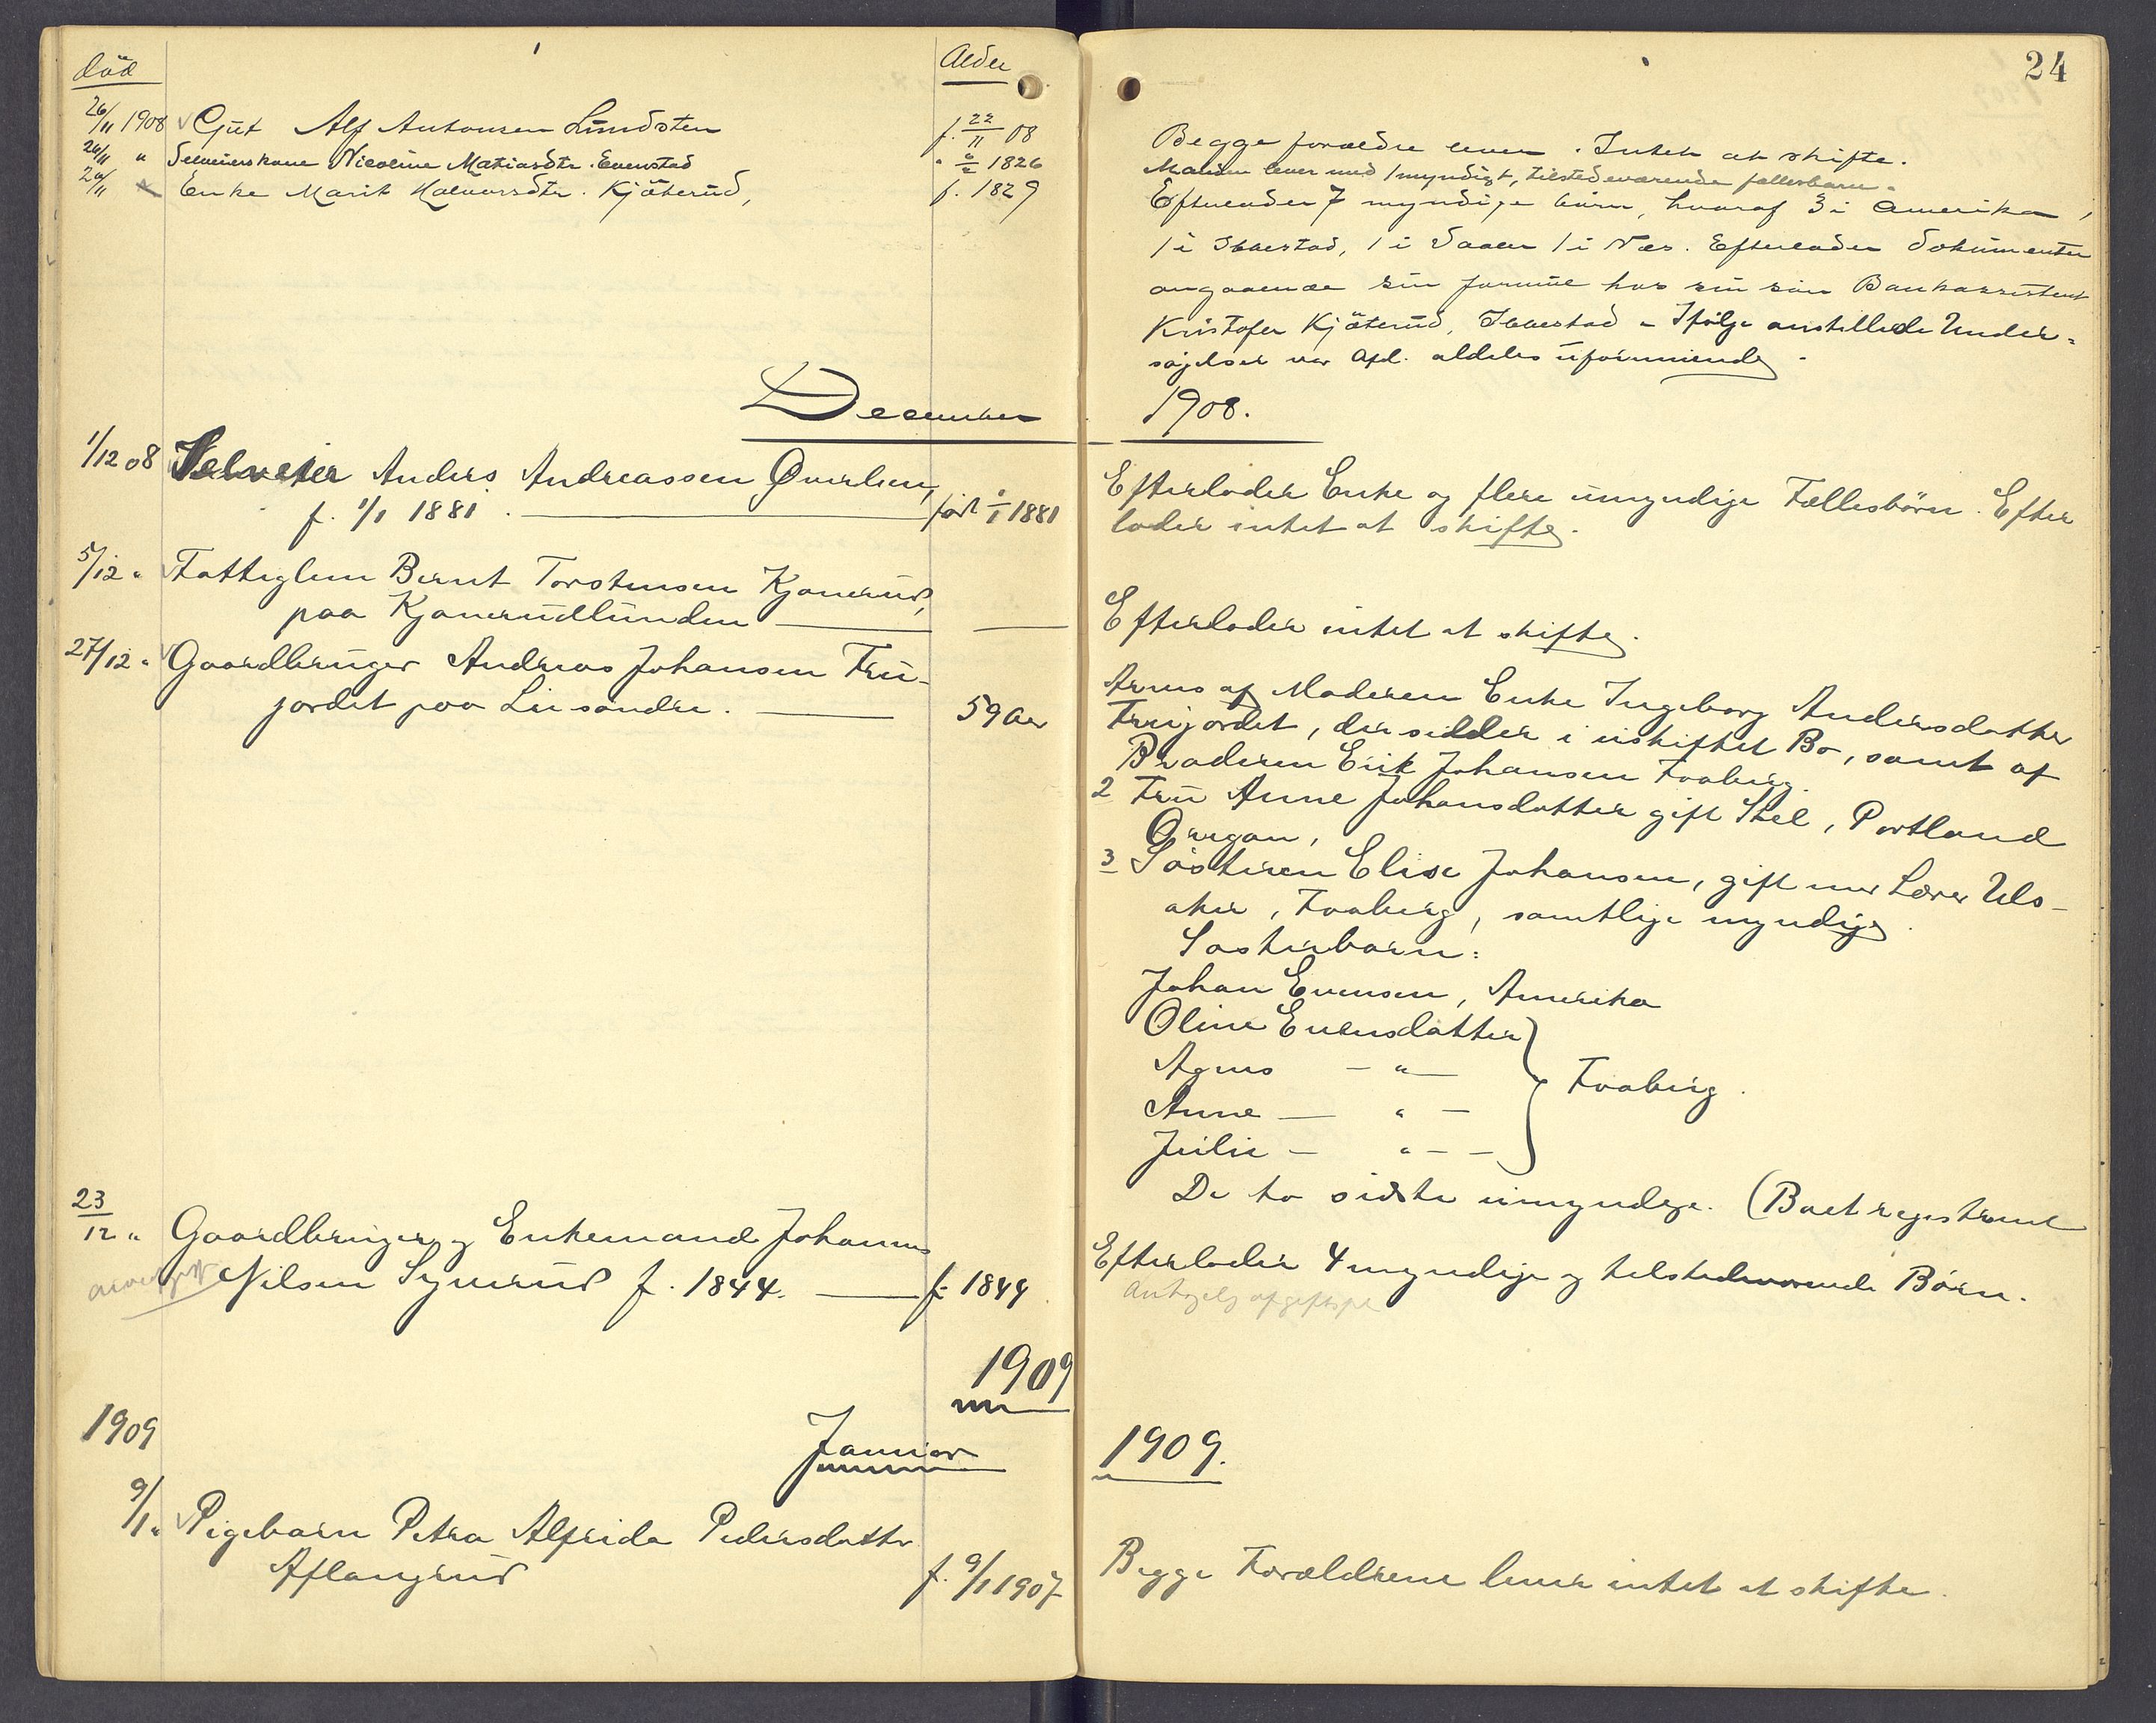 død
Alder
24
26/11 1908 Gut Alf Antonsen Lundsten
f. 22/11 08
Begge forældre lever. Intet at skifte.
24/11 " Selveierskone Nicoline Matiasdtr. Evenstad
1826
Manden lever med 1 myndigt, tilstedeværende fællesbarn.
20/11 Enke Marit Halvorsdtr. Kjøterud,
f. 1829
Efterlader 7 myndige børn, hvoraf 3 i Amerika,
1 i Idderstad, 1 i 1 i Næs. Efterlader Dokumenter
angaaende sin formue hos sin søn Bankassistent
Kristofer Kjøterud, Ifølge anstillede Under-
søgelser var Afd. aldeles uformuende.
December
1908.
1/12 08 Selveier Anders Andreassen Øverlien,
f. 1/1 1881.
født 1/1 1881
Efterlader Enke og flere umyndige Fællesbörn. Efter
lader intet at skifte.
5/12 " Fattiglem Bernt Torstensen Kjonerud,
paa Kjonerudlunden
Efterlader intet at skifte.
27/12 " Gaardbruger Andreas Johansen Fru-
jordet paa Lie søndre.
59 Aar
Arves af Moderen Enke Ingeborg Andersdatter
Frujordet, der sidder i uskiftet Bo, samt af
Broderen Erik Johansen Faaberg.
2 Fru Anne Johansdatter gift Stel, Portland
Oregon,
3 Søsteren Elise Johansen, gift med Lærer Uls-
aker, Faaberg, samtlige myndige.
Søsterbørn:
Johan Evensen, Amerika
Oline Evensdatter
Agnes — " —
Anne — " —
Julie — " — —
Faaberg.
De to sidste umyndige. (Boet registreret
23/12 " Gaardbruger og Enkemand Johannes
Nilsen Synerud f. 1844.
f. 1844
Efterlader 4 myndige og tilstedeværende Børn.
1909
1909
Januar
1909.
9/1 " Pigebarn Petra Alfrida Pedersdatter
Aflangrud
f. 9/1 1907
Begge Forældrene lever intet at skifte.